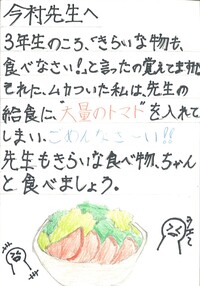 今村先生へ
3年生のころ、「きらいな物も、
食べなさい!」と言ったの覚えてますか
それに、ムカついた私は、先生の
給食に、"大量のトマト"を入れて
しまい、ごめんなさーい!!
先生もきらいな食べ物、ちゃん
と食べましょう。